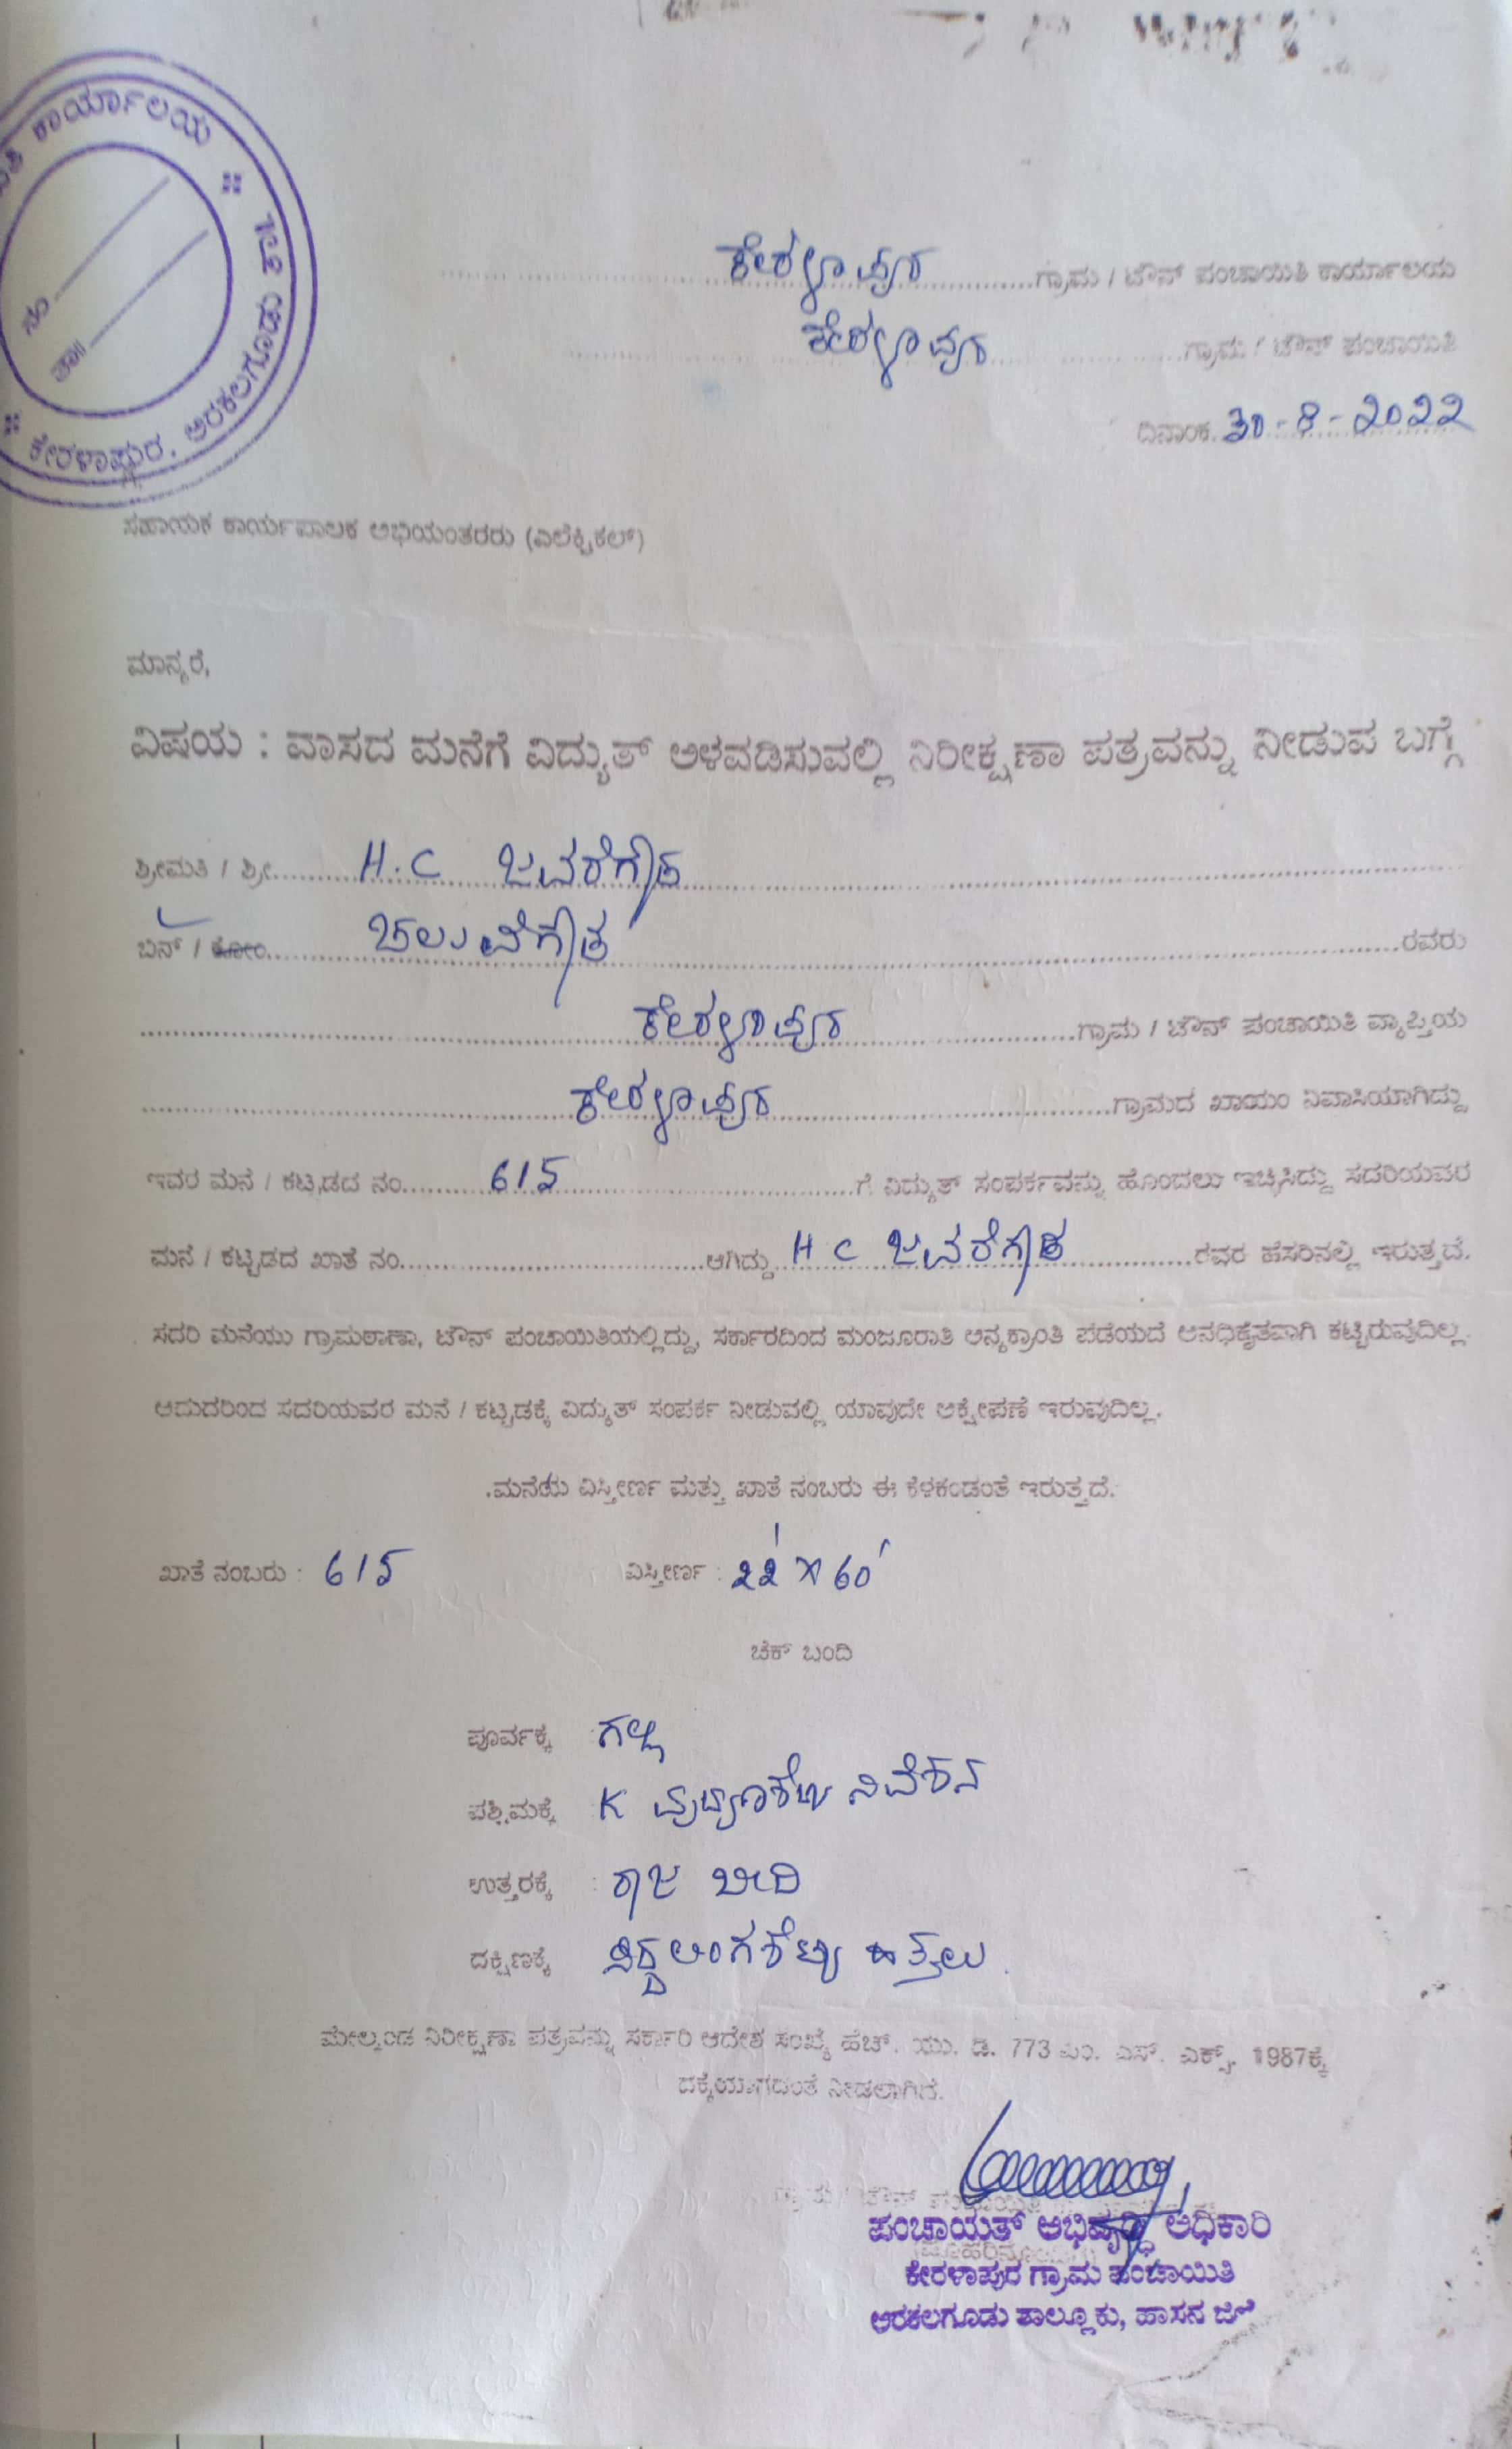 ಕಾರ್ಯಾಲಯ
ನಂ
ತಾ॥
ಕೇರಳಾಪುರ. ಅರಕಲಗೂಡು ತಾ॥
ಕೇರಳಾಪುರ ಗ್ರಾಮ / ಟೌನ್ ಪಂಚಾಯಿತಿ ಕಾರ್ಯಾಲಯ
ಕೇರಳಾಪುರ ಗ್ರಾಮ / ಟೌನ್ ಪಂಚಾಯಿತಿ
ದಿನಾಂಕ 30-8-2022
ಸಹಾಯಕ ಕಾರ್ಯಪಾಲಕ ಅಭಿಯಂತರರು (ಎಲೆಕ್ಟ್ರಿಕಲ್)
ಮಾನ್ಯರೆ,
ವಿಷಯ : ವಾಸದ ಮನೆಗೆ ವಿದ್ಯುತ್ ಅಳವಡಿಸುವಲ್ಲಿ ನಿರೀಕ್ಷಣಾ ಪತ್ರವನ್ನು ನೀಡುವ ಬಗ್ಗೆ
ಶ್ರೀಮತಿ / ಶ್ರೀ H.C ಜವರೆಗೌಡ
ಬಿನ್ / ಕೋಂ ಚಲುವೆಗೌಡ ರವರು
ಕೇರಳಾಪುರ ಗ್ರಾಮ / ಟೌನ್ ಪಂಚಾಯಿತಿ ವ್ಯಾಪ್ತಿಯ
ಕೇರಳಾಪುರ ಗ್ರಾಮದ ಖಾಯಂ ನಿವಾಸಿಯಾಗಿದ್ದು
ಇವರ ಮನೆ / ಕಟ್ಟಡದ ನಂ 615 ಗೆ ವಿದ್ಯುತ್ ಸಂಪರ್ಕವನ್ನು ಹೊಂದಲು ಇಚ್ಛಿಸಿದ್ದು ಸದರಿಯವರ
ಮನೆ / ಕಟ್ಟಡದ ಖಾತೆ ನಂ ಆಗಿದ್ದು H C ಜವರೆಗೌಡ ರವರ ಹೆಸರಿನಲ್ಲಿ ಇರುತ್ತದೆ.
ಸದರಿ ಮನೆಯು ಗ್ರಾಮಠಾಣಾ, ಟೌನ್ ಪಂಚಾಯಿತಿಯಲ್ಲಿದ್ದು, ಸರ್ಕಾರದಿಂದ ಮಂಜೂರಾತಿ ಅನ್ಯಕ್ರಾಂತಿ ಪಡೆಯದೆ ಅನಧಿಕೃತವಾಗಿ ಕಟ್ಟಿರುವುದಿಲ್ಲ.
ಆದುದರಿಂದ ಸದರಿಯವರ ಮನೆ / ಕಟ್ಟಡಕ್ಕೆ ವಿದ್ಯುತ್ ಸಂಪರ್ಕ ನೀಡುವಲ್ಲಿ ಯಾವುದೇ ಆಕ್ಷೇಪಣೆ ಇರುವುದಿಲ್ಲ.
ಮನೆಯ ವಿಸ್ತೀರ್ಣ ಮತ್ತು ಖಾತೆ ನಂಬರು ಈ ಕೆಳಕಂಡಂತೆ ಇರುತ್ತದೆ.
ಖಾತೆ ನಂಬರು : 615 ವಿಸ್ತೀರ್ಣ : 22' X 60'
ಚೆಕ್ ಬಂದಿ
ಪೂರ್ವಕ್ಕೆ : ಗಲ್ಲಿ
ಪಶ್ಚಿಮಕ್ಕೆ K ನಿವೇಶನ
ಉತ್ತರಕ್ಕೆ : ರಾಜ ಬೀದಿ
ದಕ್ಷಿಣಕ್ಕೆ ಸಿದ್ದಲಿಂಗಶೆಟ್ಟಿ ಹಿತ್ತಲು
ಮೇಲ್ಕಂಡ ನಿರೀಕ್ಷಣಾ ಪತ್ರವನ್ನು ಸರ್ಕಾರಿ ಆದೇಶ ಸಂಖ್ಯೆ ಹೆಚ್. ಯು. ಡಿ. 773 ಎಂ. ಎಸ್. ಎಕ್ಸ್. 1987ಕ್ಕೆ
ದಕ್ಕೆಯಾಗದಂತೆ ನೀಡಲಾಗಿದೆ.
ಪಂಚಾಯತ್ ಅಭಿವೃದ್ಧಿ ಅಧಿಕಾರಿ
ಕೇರಳಾಪುರ ಗ್ರಾಮ ಪಂಚಾಯಿತಿ
ಅರಕಲಗೂಡು ತಾಲ್ಲೂಕು, ಹಾಸನ ಜಿಲ್ಲೆ